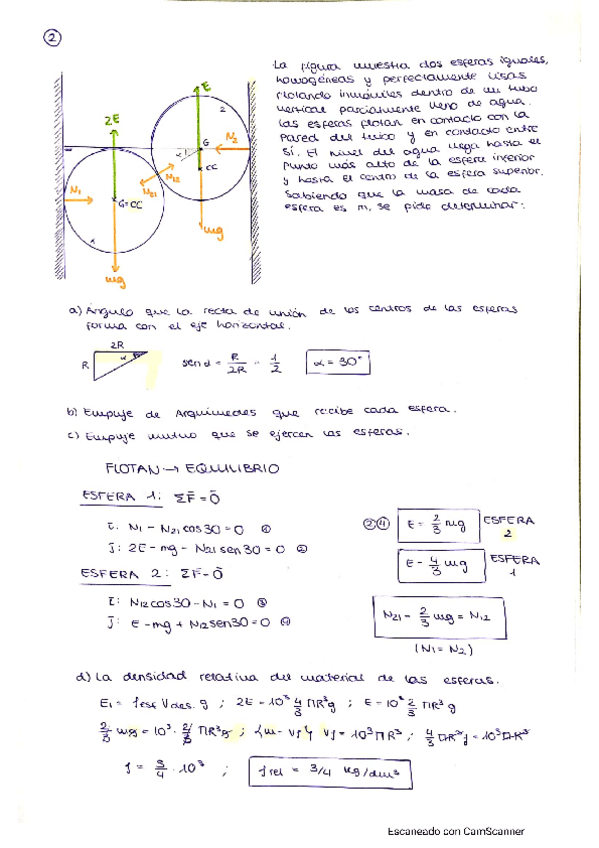 ②
La figura muestra dos esferas iguales,
homogéneas y perfectamente lisas
flotando inmóviles dentro de un tubo
vertical parcialmente lleno de agua.
Las esferas flotan en contacto con la
pared del tubo y en contacto entre
sí. El nivel del agua llega hasta el
punto más alto de la esfera inferior
y hasta el centro de la esfera superior.
Sabiendo que la masa de cada
esfera es m, se pide determinar:
E
2
2E
G
α
N2
N12
N21
CC
N1
G=CC
mg
1
mg
a) Ángulo que la recta de unión de los centros de las esferas
forma con el eje horizontal.
2R
R
α
sen α = R/2R = 1/2
α = 30°
b) Empuje de Arquímedes que recibe cada esfera.
c) Empuje mutuo que se ejercen las esferas.
FLOTAN → EQUILIBRIO
ESFERA 1: ΣF̄ = Ō
ī: N1 - N21 cos 30 = 0 ①
j̄: 2E - mg - N21 sen 30 = 0 ②
ESFERA 2: ΣF̄ = Ō
ī: N12 cos 30 - N1 = 0 ③
j̄: E - mg + N12 sen 30 = 0 ④
②④ E = 2/3 mg ESFERA 2
E = 4/3 mg ESFERA 1
N21 = 2/3 mg = N12
(N1 = N2)
d) La densidad relativa del material de las esferas.
2E = 10³ 4/3 πR³g ; E = 10³ 2/3 πR³g
2/3 mg = 10³ · 2/3 πR³g ; {m = Vρ} Vρ = 10³πR³ ; 4/3 πR³ρ = 10³πR³
ρ = 3/4 · 10³ ; ρrel = 3/4 kg/dm³
Escaneado con CamScanner